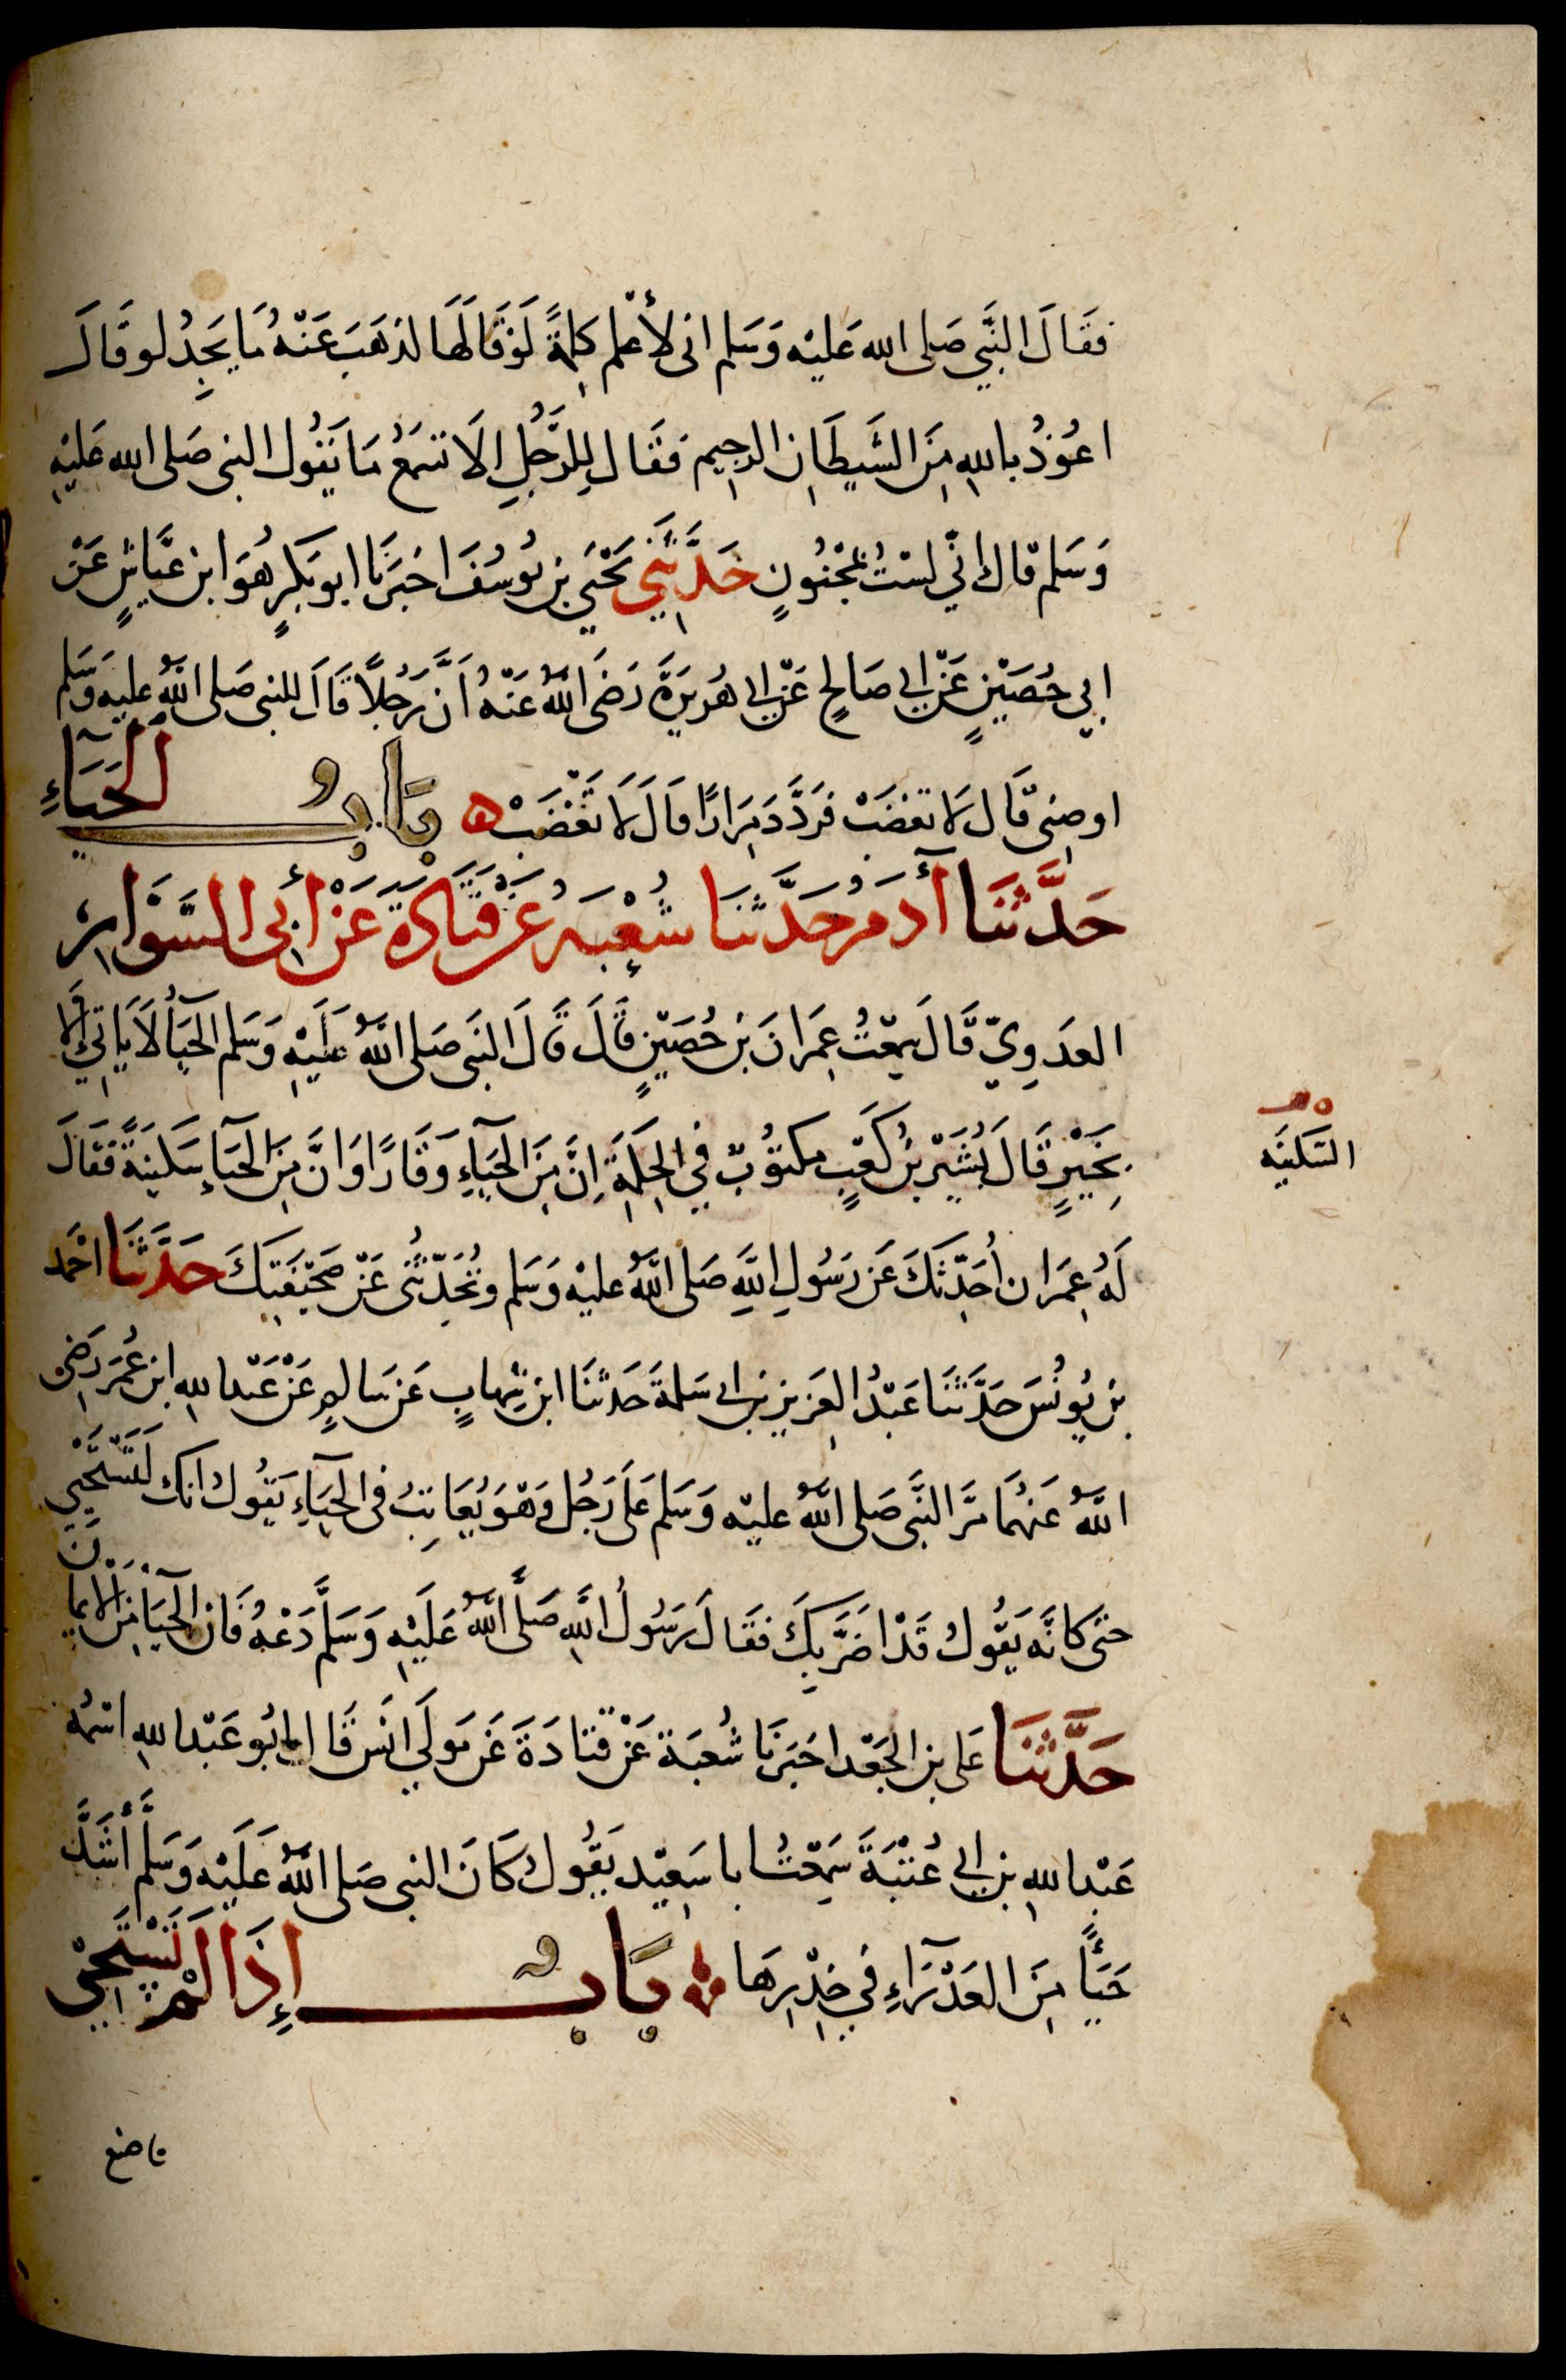 فَقَالَ النَّبِي صَلى الله عَليْه وَسَلم انى لأعْلم كلِمَةً لَوْ قَالَهَا لذهَبَ عَنْهُ مَا يَجِدُ لو قَالَ
اعُوذُ باللهِ مِنَ الشَيطَانِ الرجِيم فَقَال لِلرَّجُلِ الَا تسَمَعُ مَا يَقُول النبى صَلى الله عَليْهِ
وَسَلم قال انّي لسْتُ بمَجْنُونٍ حَدَّثَنِي يَحْيَي بن يُوسُفَ اخبَرَنَا ابو بَكرٍ هُوَ ابن عَيَّاشٍ عَنْ
ابِي حُصَيْنٍ عَنْ ابِي صَالحٍ عَنْ ابِي هُرَيرَةَ رَضَى اللهُ عَنْهُ اَنَّ رَجُلاً قَالَ للنبى صَلى اللهُ عليه وَسَلم
اوصِنِى قَال لَا تغضَبْ فَرَدَّدَ مِرَارًا قالَ لَا تَغْضَبْ ه بَابُ الْحَيَاءِ
حَدَّثَنَا آدَمُ حَدَّثَنَا شُعْبَةُ عَنْ قَتَادَةَ عَنْ أبِى السَّوَّارِ
العَدَوِيّ قَالَ سَمِعْتُ عِمرَانَ بنَ حُصَيْنٍ قَالَ قَالَ النَبى صَلى اللهُ عَلَيْهِ وَسَلم الحَيَاُ لَا يَاتِي إلا
بِخَيْرٍ قَالَ بُشَيْر بنُ كَعْبٍ مكتوُبٌ فِي الحِكمَةِ اِنَّ مِنَ الحيَآءِ وَقَارًا وَانَّ مِنَ الحَيَآءِ سَكينَةً فَقَالَ
السَكينَه
لَهُ عِمرَان اُحَدِّثكَ عَن رَسُولِ اللهِ صَلى اللهُ عليْه وَسَلم وتُحَدّثُنى عَنْ صَحيفَتِكَ حَدَّثَنَا احْمَد
بن يُونُسَ حَدَّثَنَا عَبْدُ العَزيز بن ابى سَلمةَ حَدثنَا ابن شِهابٍ عَن سَالمٍ عَنْ عَبْد اللهِ ابنِ عُمَرَ رَضِى
اللهُ عَنهُمَا مَرَّ النَّبِى صَلى اللهُ عليْه وَسَلم عَلَى رَجُل وَهوَ يُعَاتِبُ فى الحَيَآءِ يَقُولُ انك لَتَسْتَحْيِي
حتى كانَّه يَقُول قَدْ اضَرَّ بِكَ فَقَالَ رَسُولُ اللهِ صَلَّى اللهُ عَلَيْهِ وَسَلَّمَ دَعْهُ فَان الحَيَاَ مِنَ الايمَانِ
حَدَّثَنَا عَلى بن الجَعْد اخبَرَنَا شُعبَة عَنْ قتَادَةَ عَن مَولَي انَس قَال ابُو عَبْد اللهِ اسْمُهُ
عَبْد اللهِ بن ابى عُتْبَةَ سَمِعْتُ ابا سَعِيْد يَقُول كَانَ النبى صَلى اللهُ عَلَيْه وَسَلَّم أشَدَّ
حَيَاًءً مِنَ العَذْرَاءِ فِي خِدْرِهَا بَابٌ إذَا لَمْ تَسْتَحْيِ
فاصنع